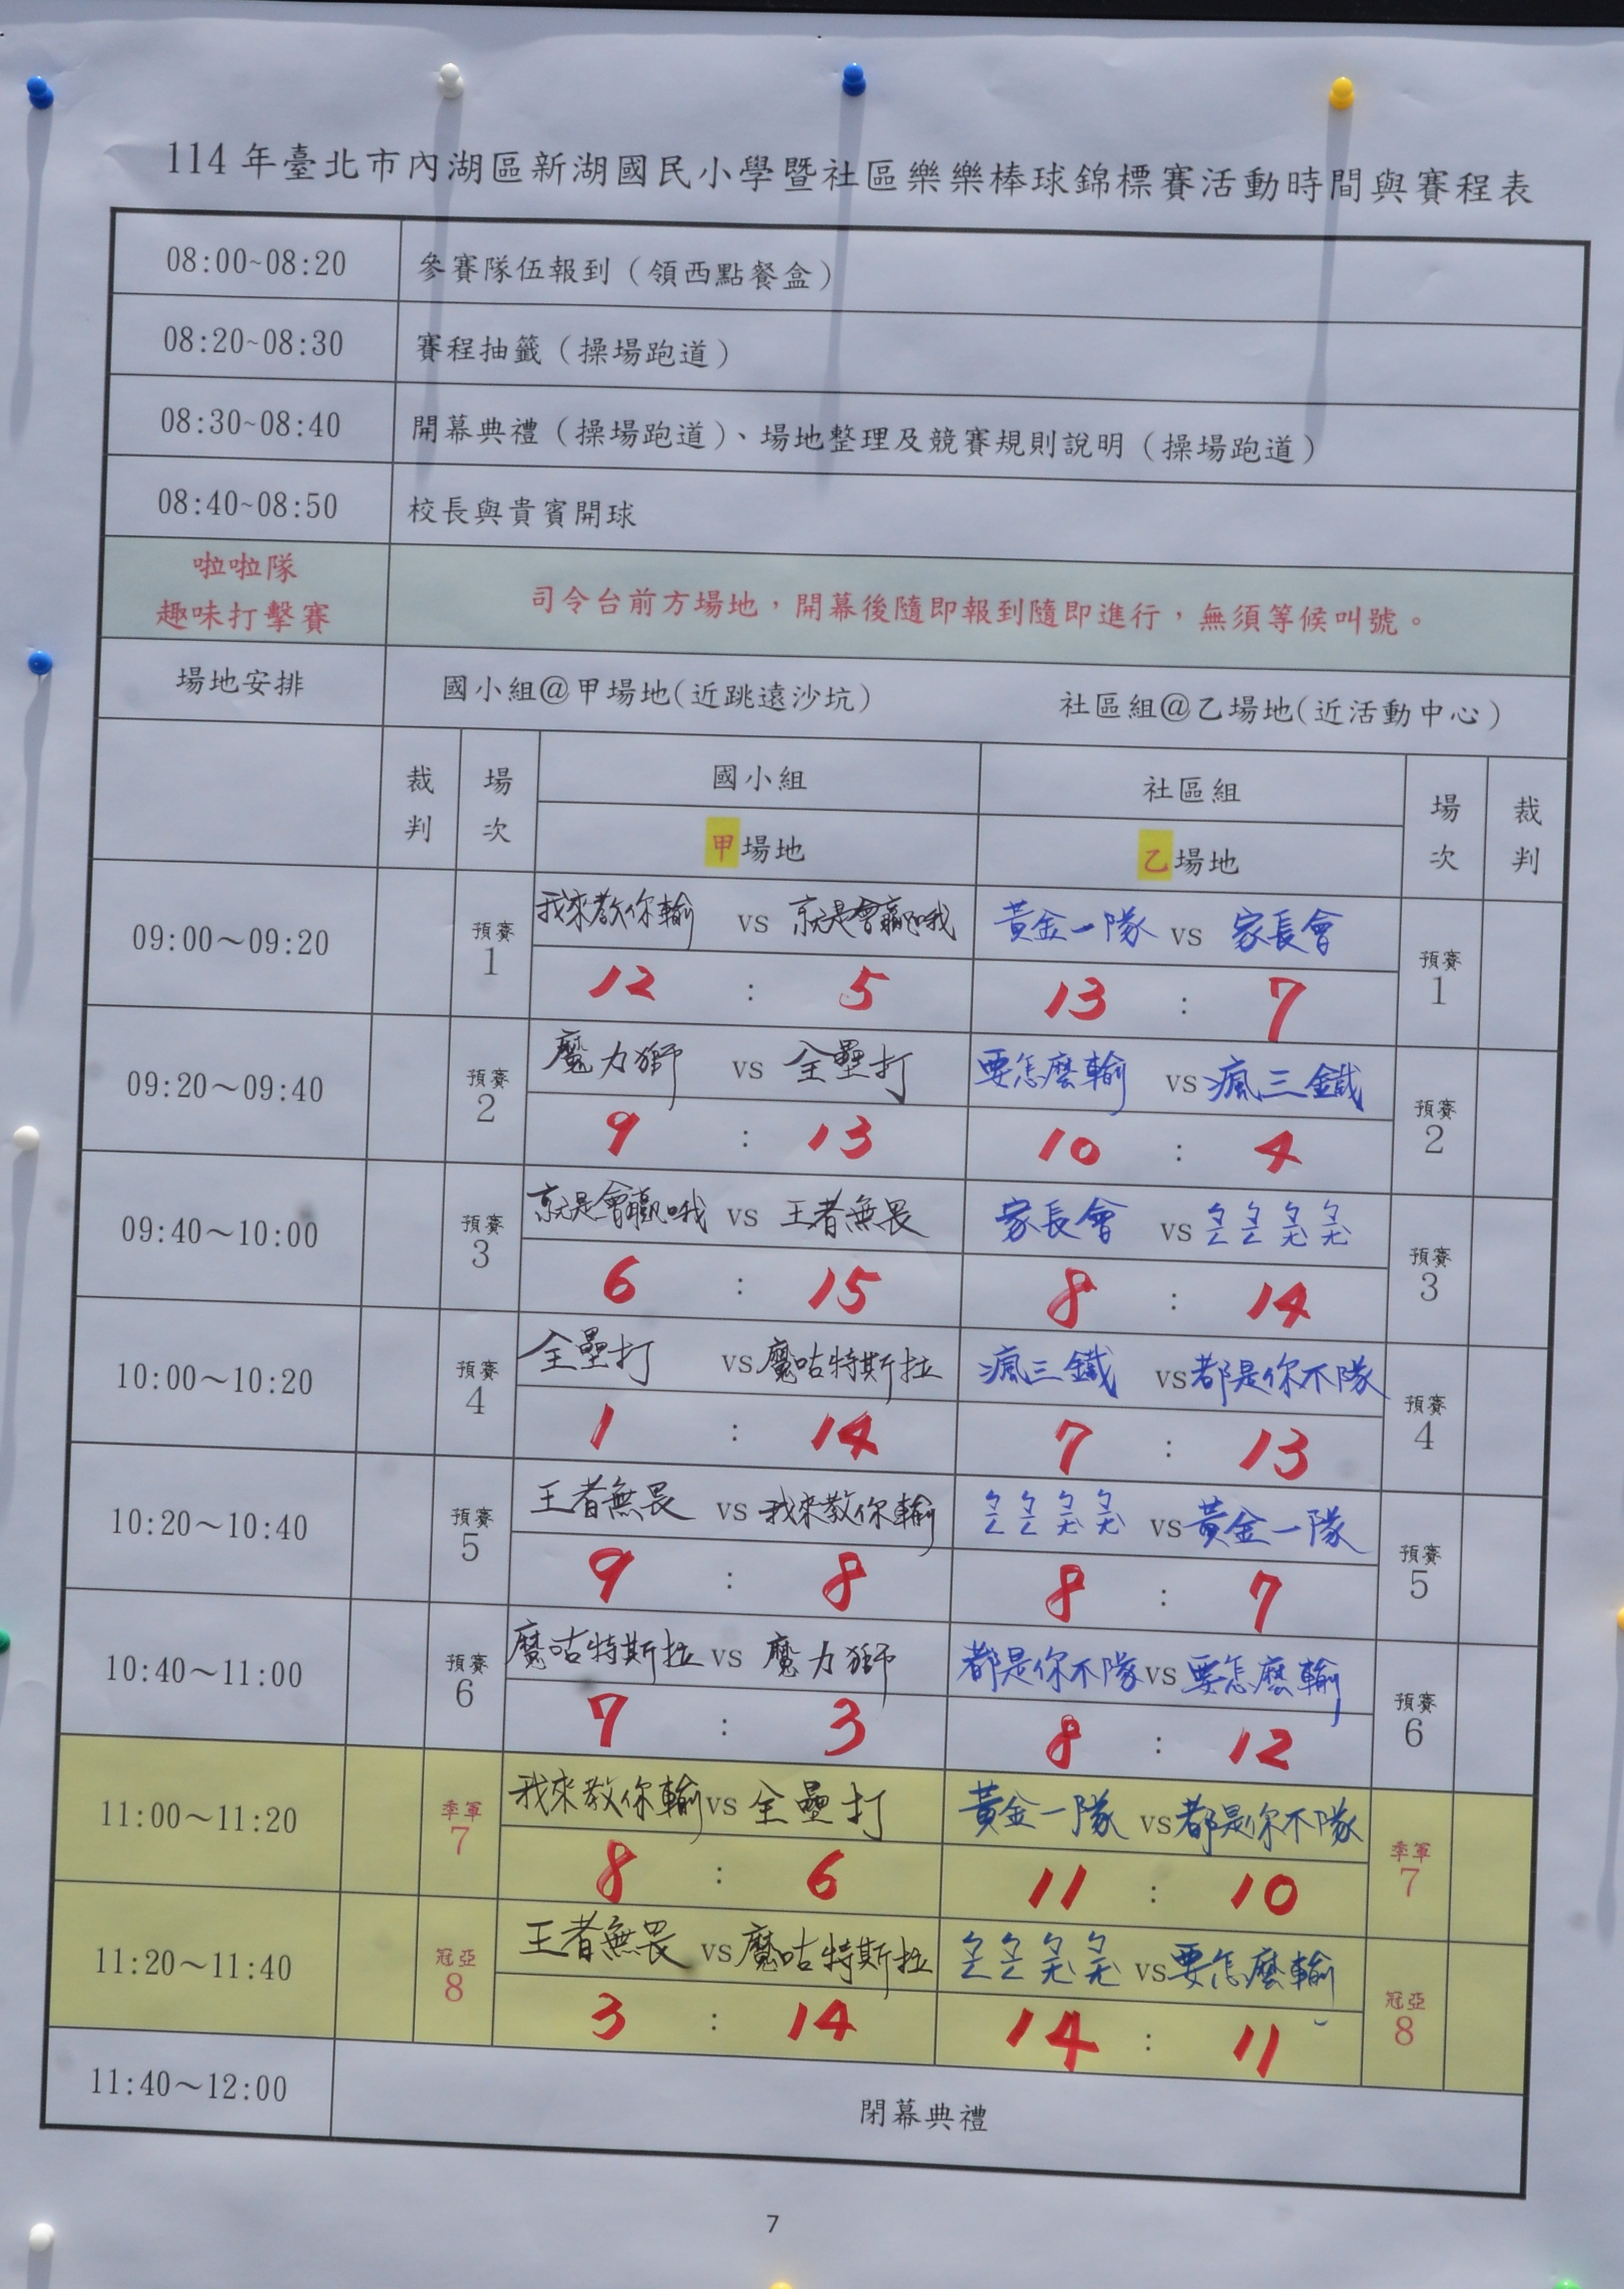 114年臺北市內湖區新湖國民小學暨社區樂樂棒球錦標賽活動時間與賽程表
08:00~08:20 參賽隊伍報到（領西點餐盒）
08:20~08:30 賽程抽籤（操場跑道）
08:30~08:40 開幕典禮（操場跑道）、場地整理及競賽規則說明（操場跑道）
08:40~08:50 校長與貴賓開球
啦啦隊
趣味打擊賽
司令台前方場地，開幕後隨即報到隨即進行，無須等候叫號。
場地安排 國小組@甲場地(近跳遠沙坑) 社區組@乙場地(近活動中心)
裁判 場次 國小組 社區組 場次 裁判
甲場地 乙場地
09:00～09:20 預賽1 我來教你輸 vs 就是會贏哦 黃金一隊 vs 家長會 預賽1
12 : 5 13 : 7
09:20～09:40 預賽2 魔力獅 vs 全壘打 要怎麼輸 vs 瘋三鐵 預賽2
9 : 13 10 : 4
09:40～10:00 預賽3 就是會贏哦 vs 王者無畏 家長會 vs ㄅㄥㄅㄥㄅㄤㄅㄤ 預賽3
6 : 15 8 : 14
10:00～10:20 預賽4 全壘打 vs 魔咕特斯拉 瘋三鐵 vs 都是你不隊 預賽4
1 : 14 7 : 13
10:20～10:40 預賽5 王者無畏 vs 我來教你輸 ㄅㄥㄅㄥㄅㄤㄅㄤ vs 黃金一隊 預賽5
9 : 8 8 : 7
10:40～11:00 預賽6 魔咕特斯拉 vs 魔力獅 都是你不隊 vs 要怎麼輸 預賽6
7 : 3 8 : 12
11:00～11:20 季軍7 我來教你輸 vs 全壘打 黃金一隊 vs 都是你不隊 季軍7
8 : 6 11 : 10
11:20～11:40 冠亞8 王者無畏 vs 魔咕特斯拉 ㄅㄥㄅㄥㄅㄤㄅㄤ vs 要怎麼輸 冠亞8
3 : 14 14 : 11
11:40～12:00 閉幕典禮
7